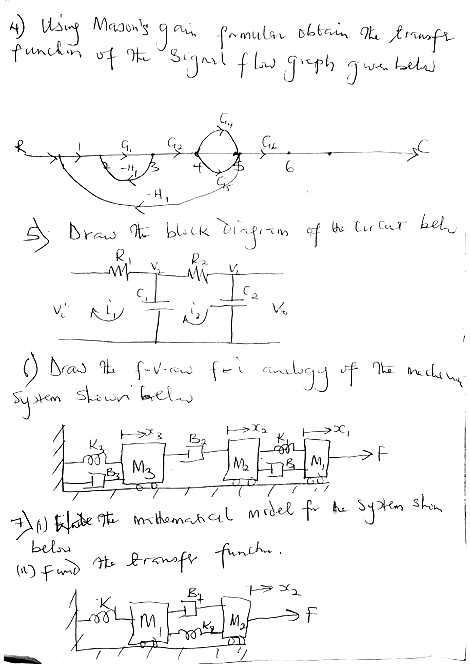 4) Using Mason's gain formular obtain the transfer
function of the signal flow graph given below
R 1 G1 G2 G4 G6 C
2 -H1 3 4 G5 5 6
-H1
5) Draw the block Diagram of the circuit below
R1 V1 R2 V2
C1 C2
Vi i1 i2 Vo
6) Draw the f-v and f-i analogy of the mechanical
system shown below
K3 x3 B2 x2 K1 x1
B3 M3 M2 B1 M1 F
7) (i) the mathematical model for the system show
below
(ii) Find the transfer function.
K M1 B2 K2 M2 x2 F